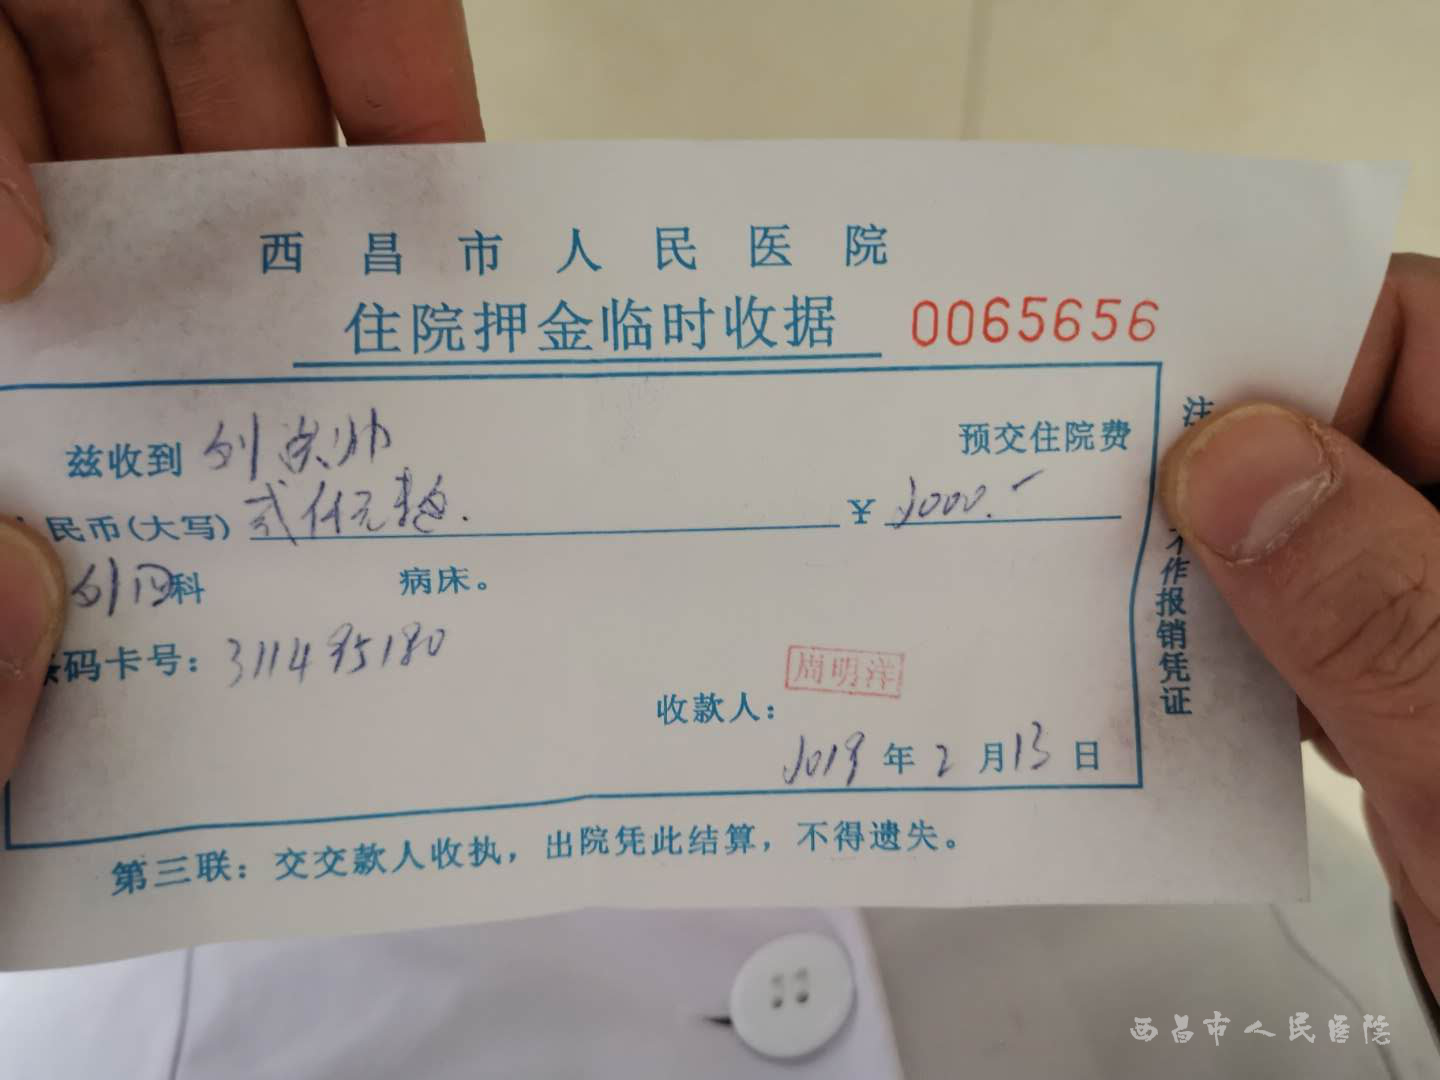 西昌市人民医院
住院押金临时收据 0065656
兹收到 预交住院费
民币(大写) 贰仟元整. ¥ 2000.-
科 病床。
码卡号: 311495180
收款人: 周明洋
2019 年 2 月 13 日
第三联:交交款人收执,出院凭此结算,不得遗失。
注
不作报销凭证
西昌市人民医院